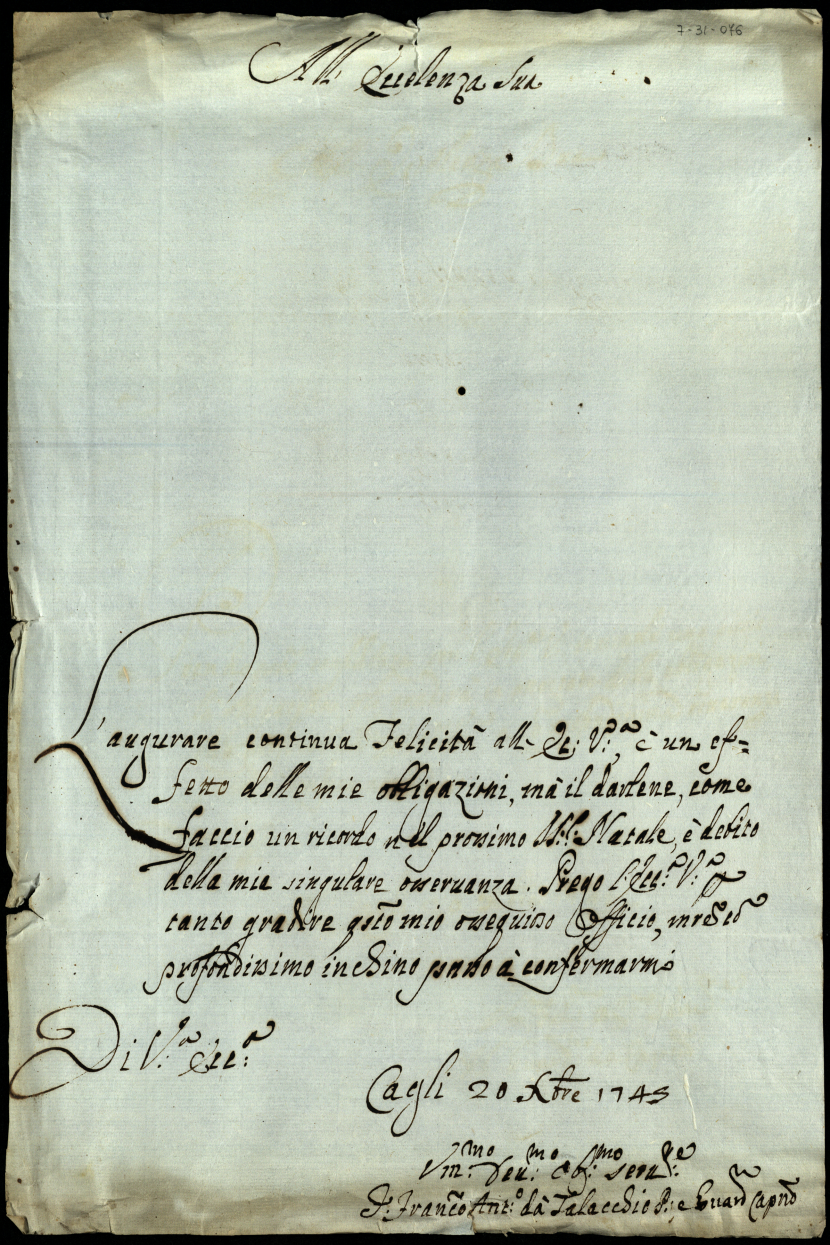 7-31-046
All' Eccelenza Sua
L'augurare continua Felicità all' Ec: V:ª, è un ef=
fetto delle mie obbligazioni, mà il darlene, come
faccio un ricordo nel prossimo SS:º Natale, è debito
della mia singulare osservanza. Prego l'Ecc:ª V:ª p
tanto gradire qsto mio ossequioso Officio, mentre cõ
profondissimo inchino passo à confermarmi
Di V:ª Ecc:ª
Cagli 20 Xbre 1745
Um:mo Deu:mo Ob:mo seru:re
F: Franco Ant:º dà Talacchio P: e Guardn Capno